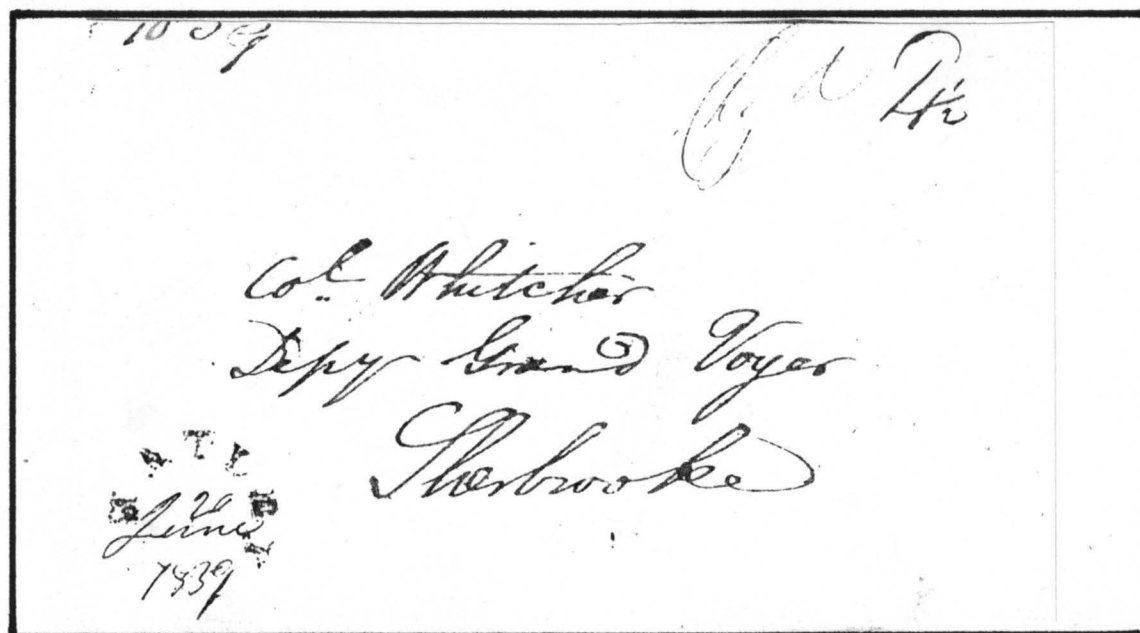 1839
Pd 4½
Col. Whitcher
Depy Grand Voyer
Sherbrooke
20
June
1839